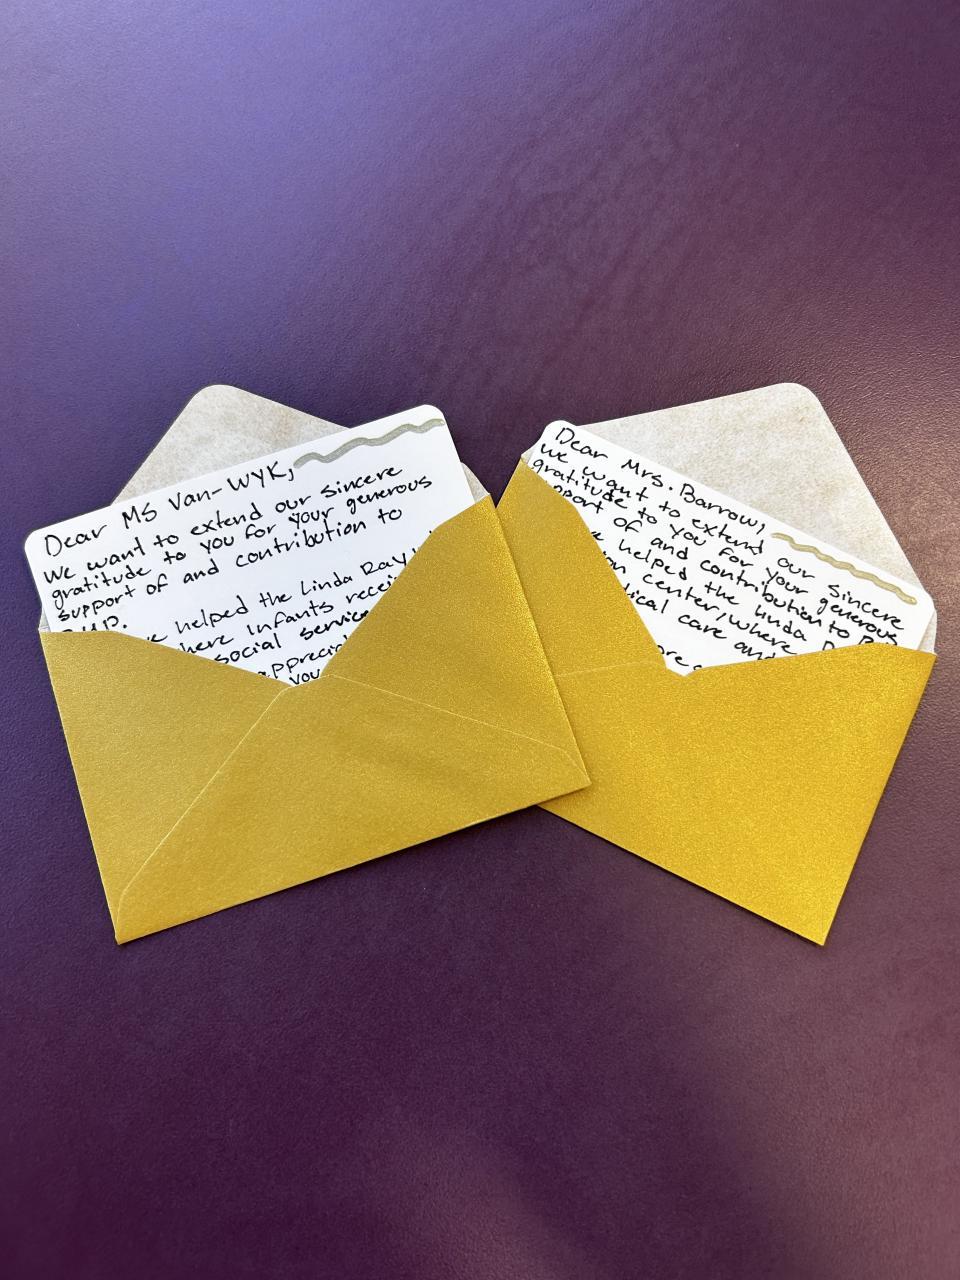 Dear MS Van-WYK,
We want to extend our sincere
gratitude to you for your generous
support of and contribution to
helped the Linda Ray
where infants
social
you
Dear Mrs. Barrow,
we want to extend our sincere
gratitude to you for your generous
of and contribution to
helped the Linda
center, where
care and